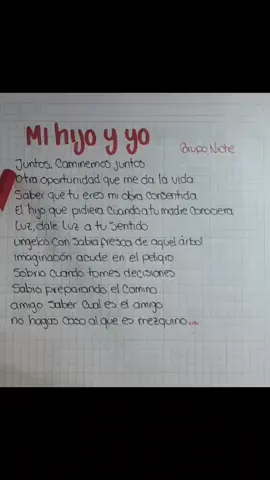 Mi hijo y yo
Grupo Niche
Juntos, Caminemos juntos
Otra oportunidad que me da la vida
Saber que tu eres mi obra consentida
El hijo que pidiera cuando a tu madre conociera
Luz, dale Luz a tu Sentido
ungelos con Sabia fresca de aquel árbol
imaginación acude en el peligro
Sobrio cuando tomes decisiones
Sabio preparando el Camino
amigo Saber Cual es el amigo
no hagas Caso al que es mezquino...